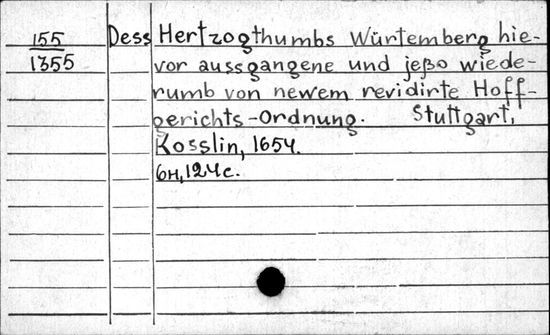 155 Dess Hertzogthumbs Würtemberg hie-
1355 vor aussgangene und jeßo wiede-
rumb von newem revidirte Hoff-
gerichts-Ordnung. Stuttgart,
Kosslin, 1654.
6н,124с.